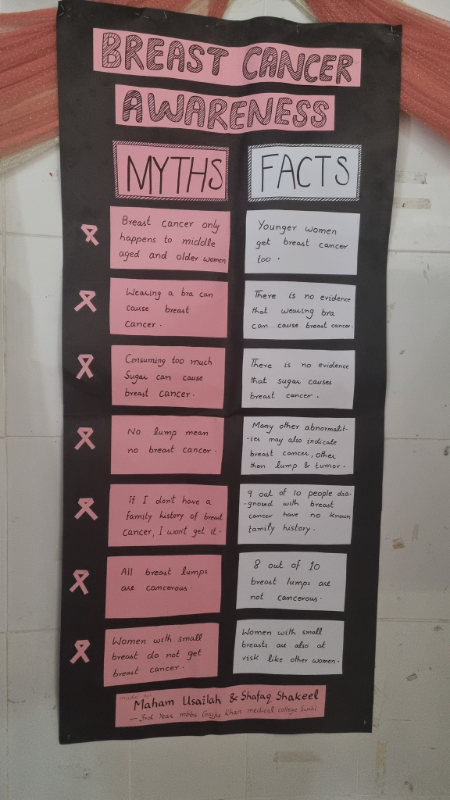 BREAST CANCER
AWARENESS
MYTHS
FACTS
Breast cancer only
happens to middle
aged and older women
Younger women
get breast cancer
too.
Wearing a bra can
cause breast
cancer.
There is no evidence
that wearing bra
can cause breast cancer.
Consuming too much
Sugar can cause
breast cancer.
There is no evidence
that sugar causes
breast cancer.
No lump mean
no breast cancer.
Many other abnormalit-
-ies may also indicate
breast cancer, other
than lump & tumor.
If I don't have a
family history of breast
cancer, I won't get it.
9 out of 10 people dia-
-gnosed with breast
cancer have no known
family history.
All breast lumps
are cancerous.
8 out of 10
breast lumps are
not cancerous.
Women with small
breast do not get
breast cancer.
Women with small
breasts are also at
risk like other women.
Maham Usailah & Shafaq Shakeel
Year mbbs Gajju Khan medical college Swabi